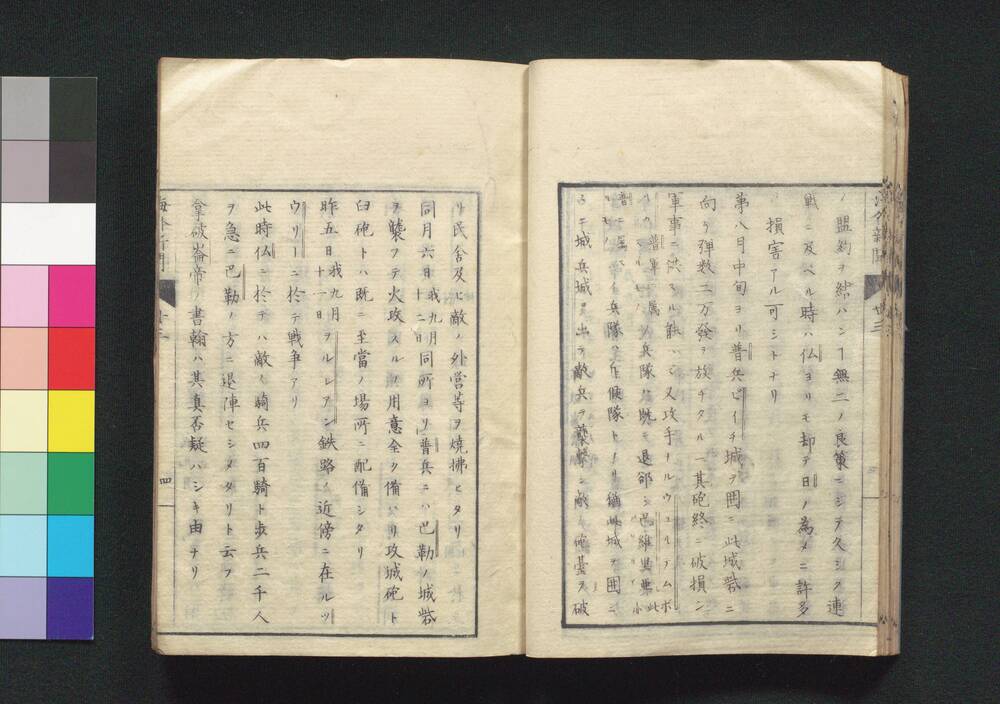 ノ盟約ヲ結ハンヿ無二ノ良策ニシテ久シク連
戦ニ及ベル時ハ仏ヨリモ却テ日ノ為メニ許多
ノ損害アル可シトナリ
第八月中旬ヨリ普兵ビイチ城ヲ囲ミ此城砦ニ
向ケ弾数二万發ヲ放チタル其砲終ニ破損シ
軍事ニ洪スル能ハズ又攻手ールウェルテムボ
普軍ニ属 兵隊ハ既ニ退郤シ 此
普ニ属 兵隊ハ斥候隊トノリ猶此城ヲ囲ミ
ニ城兵城ヲ出テ敵兵ヲ襲撃シ敵ノ砲臺ヲ破
リ民舎及ビ敵ノ外営等ヲ焼拂ヒタリ
同月六日我九月十二日同所ヨリ普兵ニハ巴勒ノ城砦
ヲ襲フテ火攻スルノ用意全ク備ハリ攻城砲ト
臼砲トハ既ニ至當ノ場所ニ配備シタリ
昨五日我九月十一日ヲルレアン鉄路ノ近傍ニ在ルツ
ウリーニ於テ戦争アリ
此時仏ニ於テハ敵ノ騎兵四百騎ト歩兵二千人
ヲ急ニ巴勒ノ方ニ退陣セシメタリト云フ
拿破崙帝ノ書翰ハ其真否疑ハシキ由ナリ
四